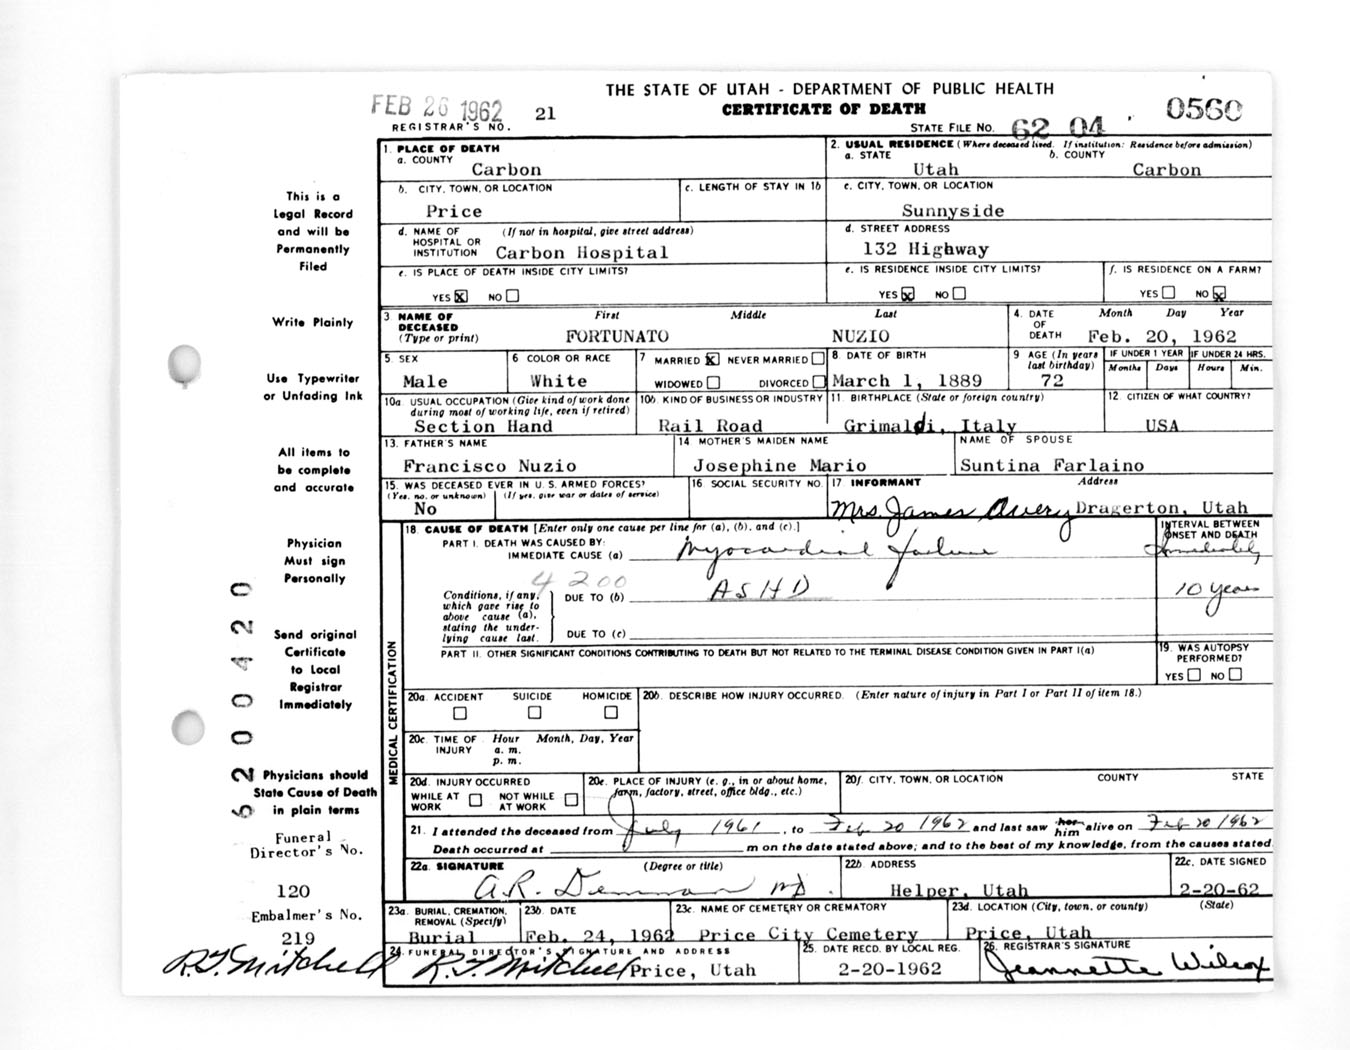 THE STATE OF UTAH - DEPARTMENT OF PUBLIC HEALTH
FEB 26 1962 21 CERTIFICATE OF DEATH 0560
REGISTRAR'S NO. STATE FILE NO. 62 04
1. PLACE OF DEATH
a. COUNTY
Carbon
2. USUAL RESIDENCE (Where deceased lived. If institution: Residence before admission)
a. STATE b. COUNTY
Utah Carbon
b. CITY, TOWN, OR LOCATION c. LENGTH OF STAY IN 1b
Price
c. CITY, TOWN, OR LOCATION
Sunnyside
d. NAME OF HOSPITAL OR INSTITUTION (If not in hospital, give street address)
Carbon Hospital
d. STREET ADDRESS
132 Highway
e. IS PLACE OF DEATH INSIDE CITY LIMITS?
YES x NO
e. IS RESIDENCE INSIDE CITY LIMITS? f. IS RESIDENCE ON A FARM?
YES x NO YES NO x
3 NAME OF DECEASED (Type or print) First Middle Last
FORTUNATO NUZIO
4. DATE OF DEATH Month Day Year
Feb. 20, 1962
5. SEX 6 COLOR OR RACE 7 MARRIED x NEVER MARRIED 8. DATE OF BIRTH 9 AGE (In years last birthday) IF UNDER 1 YEAR IF UNDER 24 HRS.
Months Days Hours Min.
Male White WIDOWED DIVORCED March 1, 1889 72
10a. USUAL OCCUPATION (Give kind of work done during most of working life, even if retired) 10b. KIND OF BUSINESS OR INDUSTRY 11. BIRTHPLACE (State or foreign country) 12. CITIZEN OF WHAT COUNTRY?
Section Hand Rail Road Grimaldi, Italy USA
13. FATHER'S NAME 14 MOTHER'S MAIDEN NAME NAME OF SPOUSE
Francisco Nuzio Josephine Mario Suntina Farlaino
15. WAS DECEASED EVER IN U.S. ARMED FORCES? 16. SOCIAL SECURITY NO. 17 INFORMANT Address
(Yes, no, or unknown) (If yes, give war or dates of service)
No Mrs. James Avery Dragerton, Utah
18. CAUSE OF DEATH [Enter only one cause per line for (a), (b), and (c).] INTERVAL BETWEEN ONSET AND DEATH
PART I. DEATH WAS CAUSED BY:
IMMEDIATE CAUSE (a) Myocardial failure Immediately
4200
Conditions, if any, which gave rise to above cause (a), stating the underlying cause last.
DUE TO (b) ASHD 10 years
DUE TO (c)
PART II. OTHER SIGNIFICANT CONDITIONS CONTRIBUTING TO DEATH BUT NOT RELATED TO THE TERMINAL DISEASE CONDITION GIVEN IN PART I(a)
19. WAS AUTOPSY PERFORMED?
YES NO
MEDICAL CERTIFICATION
20a. ACCIDENT SUICIDE HOMICIDE 20b. DESCRIBE HOW INJURY OCCURRED. (Enter nature of injury in Part I or Part II of item 18.)
20c. TIME OF INJURY Hour Month, Day, Year
a. m.
p. m.
20d. INJURY OCCURRED
WHILE AT WORK NOT WHILE AT WORK
20e. PLACE OF INJURY (e. g., in or about home, farm, factory, street, office bldg., etc.)
20f. CITY, TOWN, OR LOCATION COUNTY STATE
21. I attended the deceased from July 1961, to Feb 20 1962 and last saw her him alive on Feb 20 1962
Death occurred at m on the date stated above; and to the best of my knowledge, from the causes stated
22a. SIGNATURE (Degree or title) 22b. ADDRESS 22c. DATE SIGNED
A.R. Demman MD. Helper, Utah 2-20-62
23a. BURIAL, CREMATION, REMOVAL (Specify) 23b. DATE 23c. NAME OF CEMETERY OR CREMATORY 23d. LOCATION (City, town, or county) (State)
Burial Feb. 24, 1962 Price City Cemetery Price, Utah
24. FUNERAL DIRECTOR'S SIGNATURE AND ADDRESS 25. DATE RECD. BY LOCAL REG. 26. REGISTRAR'S SIGNATURE
R.T. Mitchell Price, Utah 2-20-1962 Jeannette Wilcox
This is a
Legal Record
and will be
Permanently
Filed
Write Plainly
Use Typewriter
or Unfading Ink
All items to
be complete
and accurate
Physician
Must sign
Personally
Send original
Certificate
to Local
Registrar
Immediately
Physicians should
State Cause of Death
in plain terms
Funeral
Director's No.
120
Embalmer's No.
219
R.T. Mitchell
6200420